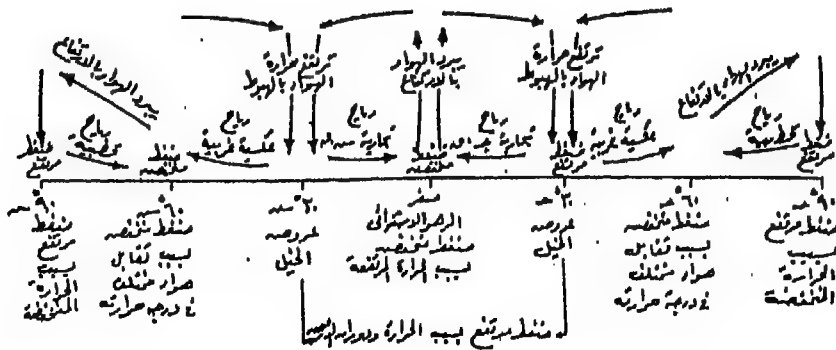 ترتفع حرارة
الهواء بالهبوط
يبرد الهواء
بالارتفاع
ترتفع حرارة
الهواء بالهبوط
يبرد الهواء بالارتفاع
يبرد الهواء بالارتفاع
ضغط
مرتفع
رياح
قطبية
ضغط
منخفض
رياح
عكسية غربية
رياح
تجارية
ضغط
منخفض
رياح
تجارية
ضغط
مرتفع
رياح
عكسية غربية
رياح
قطبية
ضغط
مرتفع
٩٠°
ضغط
مرتفع
بسبب
الحرارة
المنخفضة
٦٠°
ضغط منخفض
بسبب تقابل
هواء مختلف
في درجة حرارته
٣٠°
عروض
الخيل
صفر
الرهو الاستوائي
ضغط منخفض
بسبب الحرارة المرتفعة
٣٠°
عروض
الخيل
٦٠°
ضغط منخفض
بسبب تقابل
هواء مختلف
في درجة حرارته
٩٠°
ضغط مرتفع
بسبب
الحرارة
المنخفضة
ضغط مرتفع بسبب الحرارة ودوران الأرض